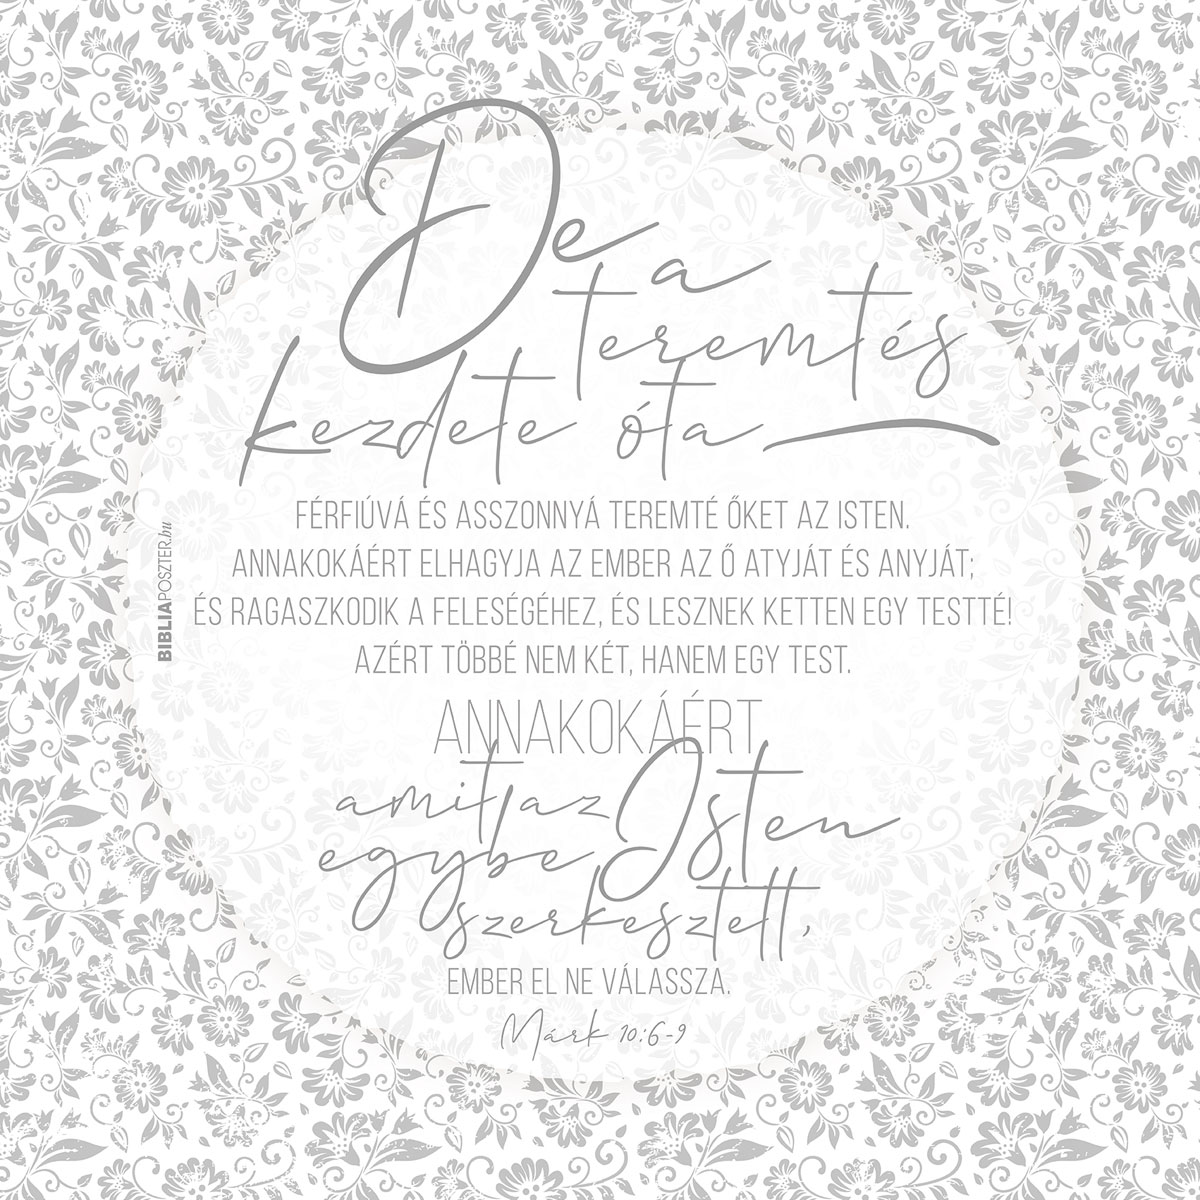 De a
teremtés
kezdete óta
FÉRFIÚVÁ ÉS ASSZONNYÁ TEREMTÉ ŐKET AZ ISTEN.
ANNAKOKÁÉRT ELHAGYJA AZ EMBER AZ Ő ATYJÁT ÉS ANYJÁT;
ÉS RAGASZKODIK A FELESÉGÉHEZ, ÉS LESZNEK KETTEN EGY TESTTÉ!
AZÉRT TÖBBÉ NEM KÉT, HANEM EGY TEST.
ANNAKOKÁÉRT
amit az Isten
egybe
szerkesztett,
EMBER EL NE VÁLASSZA.
Márk 10:6-9
BIBLIAPOSZTER.hu